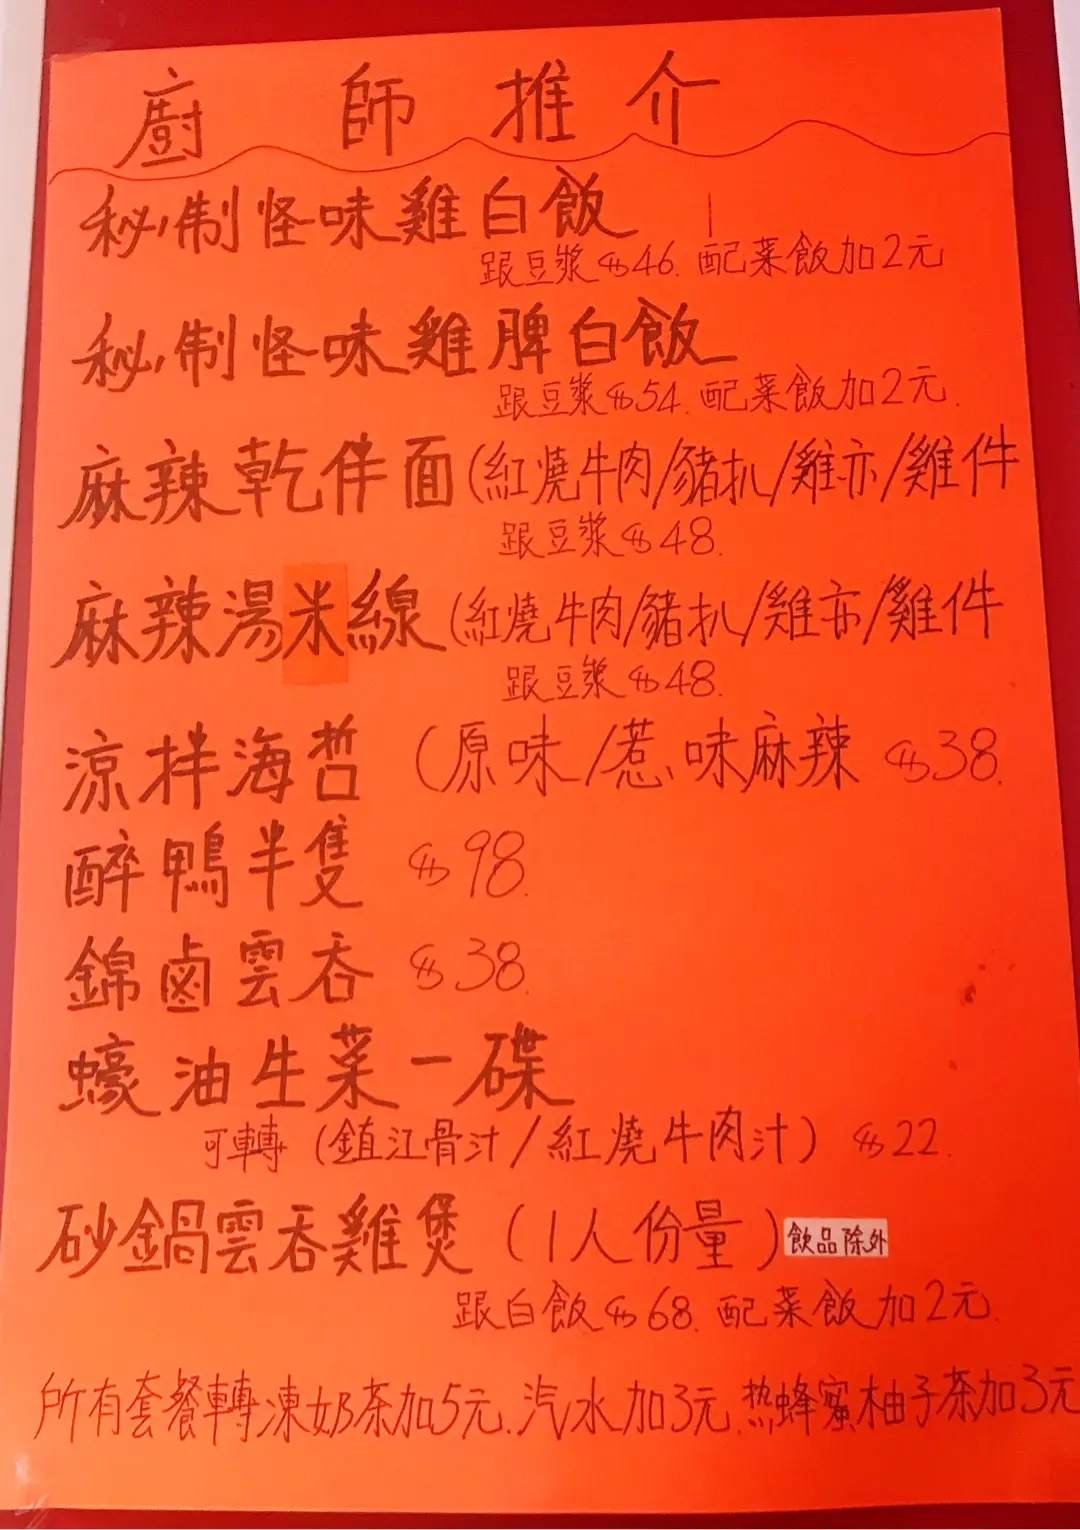 廚師推介
秘制怪味雞白飯
跟豆漿$46. 配菜飯加2元
秘制怪味雞脾白飯
跟豆漿$54. 配菜飯加2元.
麻辣乾伴面(紅燒牛肉/豬扒/雞亦/雞件
跟豆漿$48.
麻辣湯米線(紅燒牛肉/豬扒/雞亦/雞件
跟豆漿$48.
涼拌海哲 (原味/惹味麻辣 $38.
醉鴨半隻 $98.
錦鹵雲吞 $38.
蠔油生菜一碟
可轉 (鎮江骨汁/紅燒牛肉汁) $22.
砂鍋雲吞雞煲 (1人份量) 飲品除外
跟白飯$68. 配菜飯加2元.
所有套餐轉凍奶茶加5元.汽水加3元.热蜂蜜柚子茶加3元